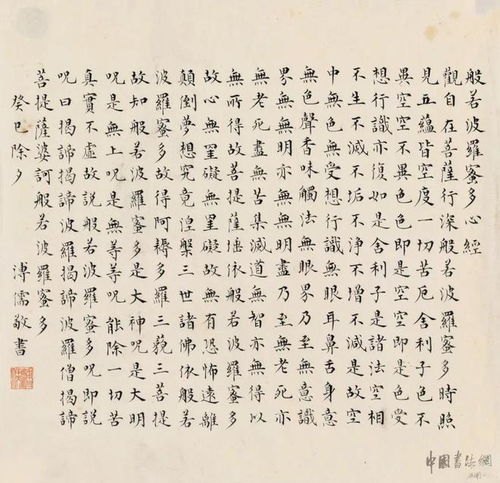 般若波羅蜜多心經
觀自在菩薩行深般若波羅蜜多時照
見五蘊皆空度一切苦厄舍利子色不
異空空不異色色即是空空即是色受
想行識亦復如是舍利子是諸法空相
不生不滅不垢不淨不增不減是故空
中無色無受想行識無眼耳鼻舌身意
無色聲香味觸法無眼界乃至無意識
界無無明亦無無明盡乃至無老死亦
無老死盡無苦集滅道無智亦無得以
無所得故菩提薩埵依般若波羅蜜多
故心無罣礙無罣礙故無有恐怖遠離
顛倒夢想究竟涅槃三世諸佛依般若
波羅蜜多故得阿耨多羅三藐三菩提
故知般若波羅蜜多是大神呪是大明
呪是無上呪是無等等呪能除一切苦
真實不虛故說般若波羅蜜多呪即說
呪曰揭諦揭諦波羅揭諦波羅僧揭諦
菩提薩婆訶般若波羅蜜多
癸巳除夕 溥儒敬書
中國書法網